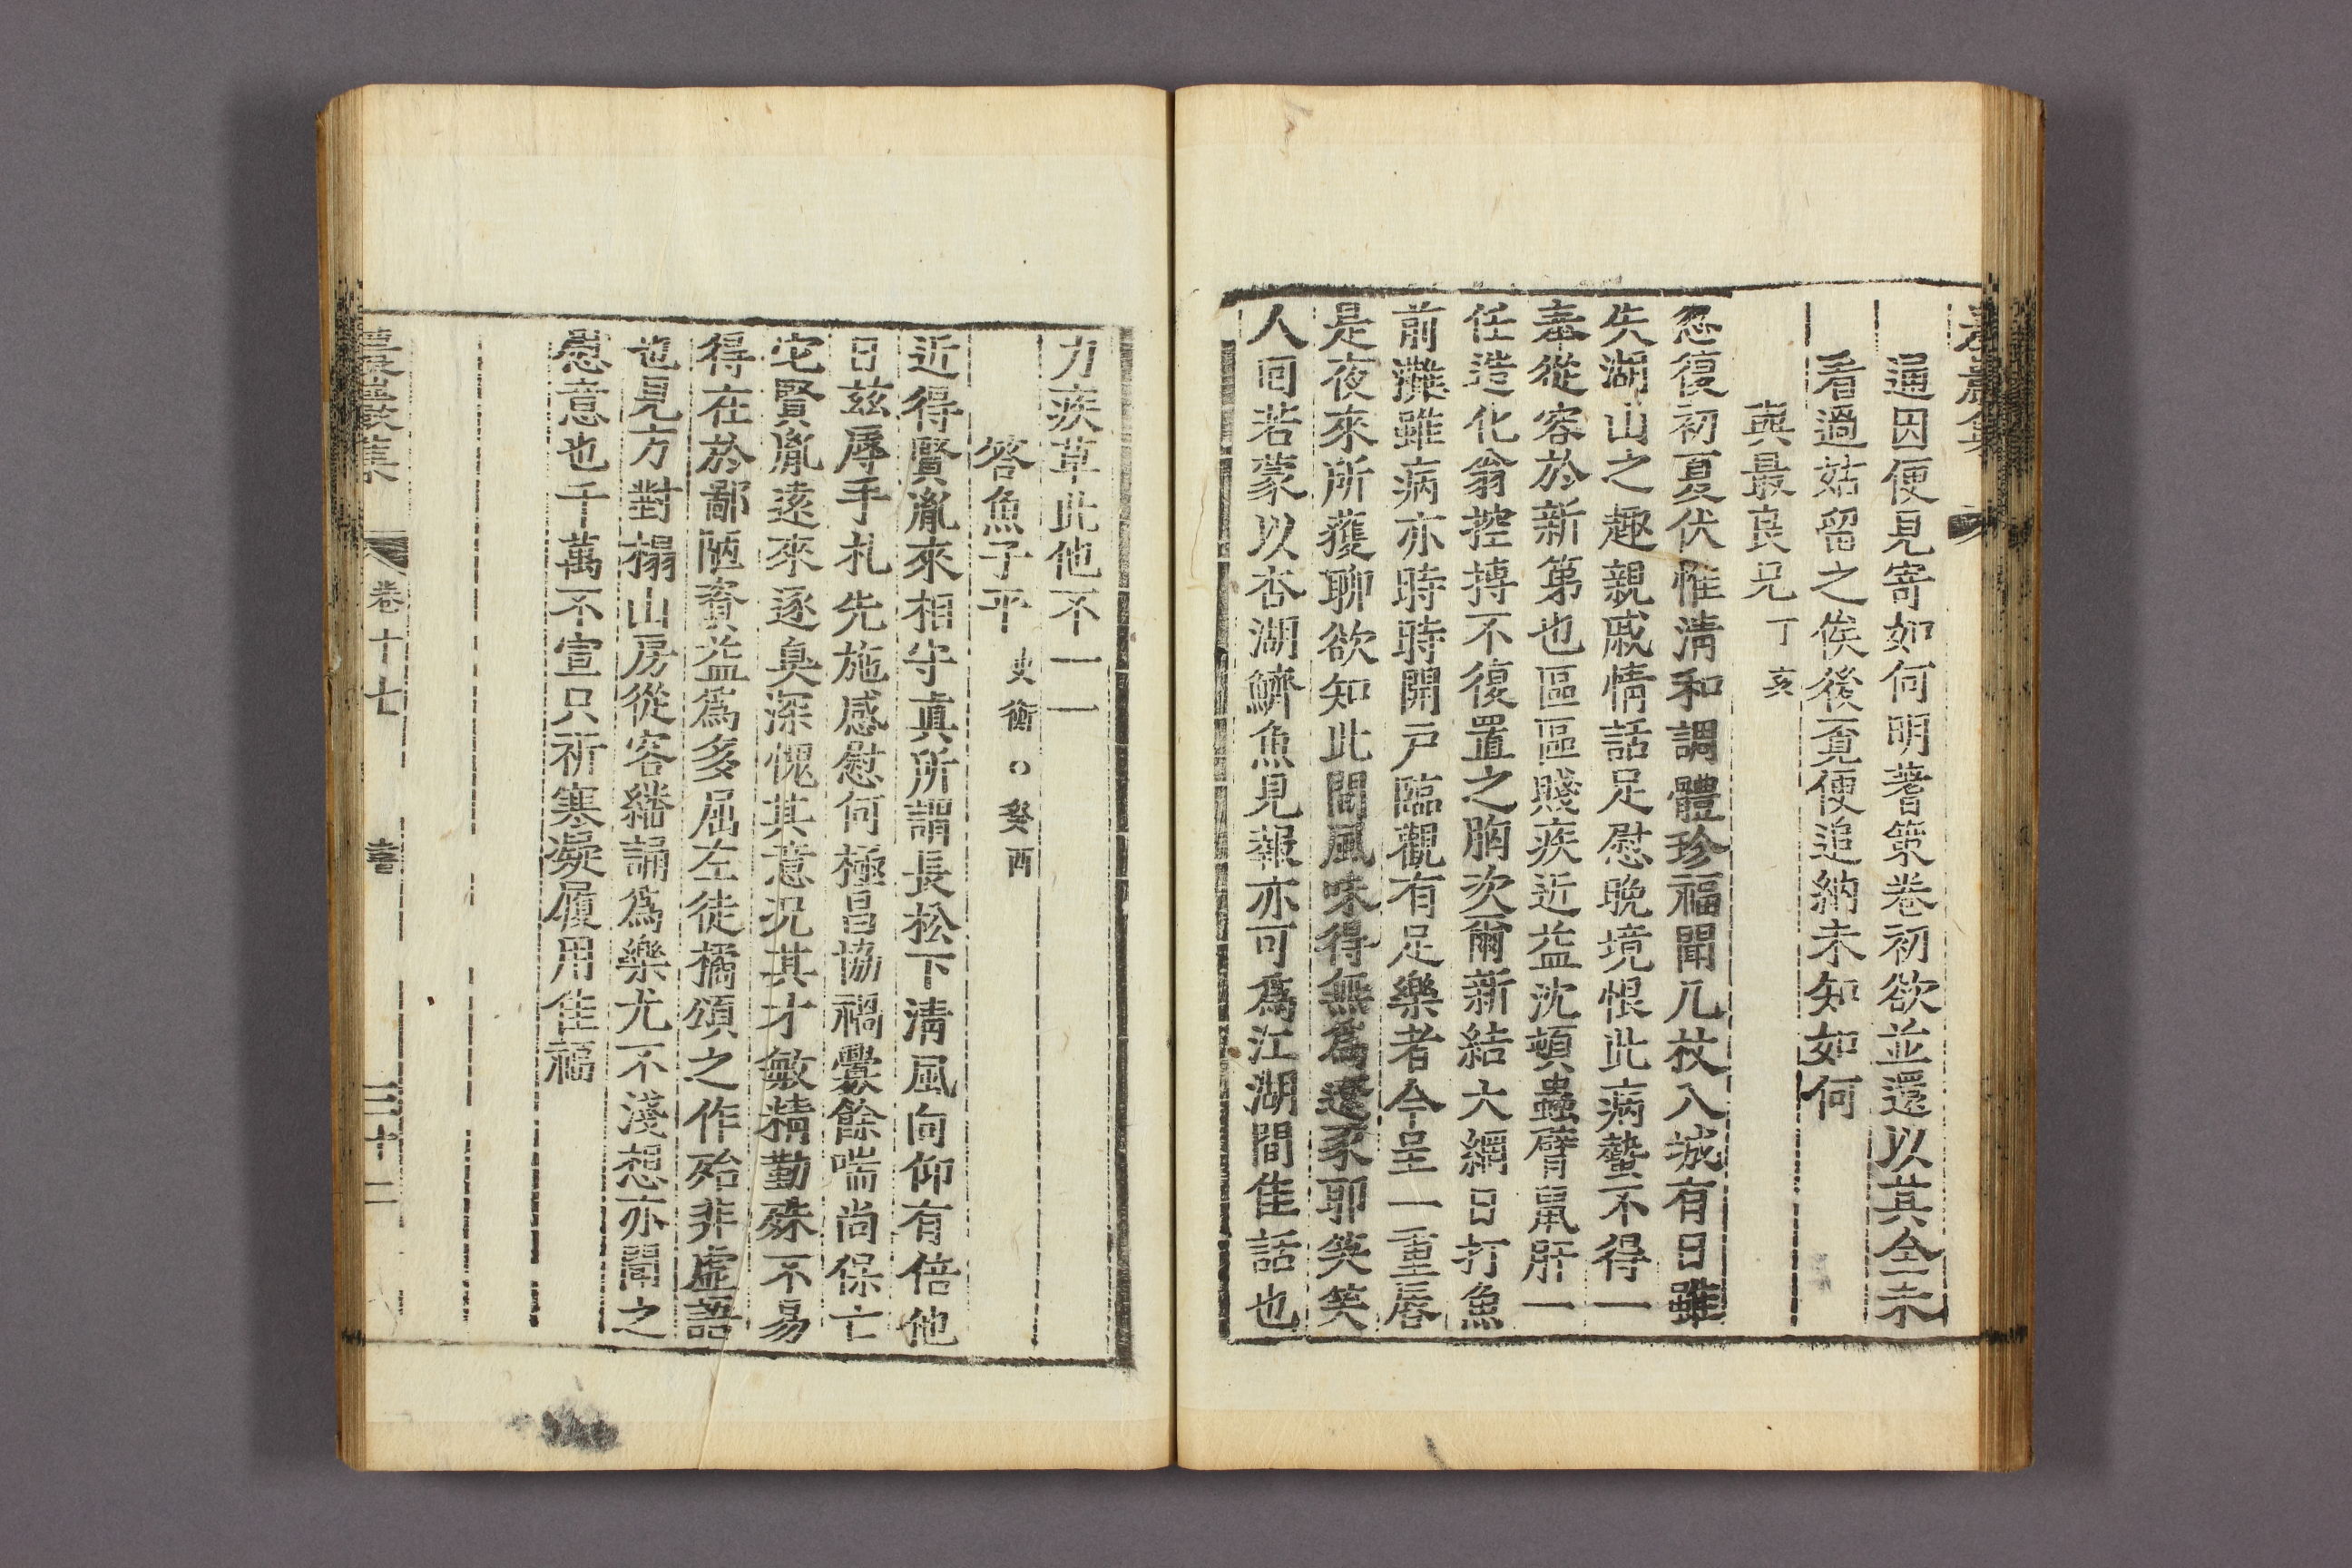 逼因便見寄如何明蓍策卷初欲並還以其全未
看過姑留之俟後覓便追納未知如何
與最良兄 丁亥
忽復初夏伏惟淸和調體珍福聞几杖入城有日雖
失湖山之趣親戚情話足慰晩境恨此病蟄不得一
奉從容於新第也區區賤疾近益沈頓蟲臂鼠肝一
任造化翁控搏不復置之胸次爾新結大網日打魚
前灘雖病亦時時開戶臨觀有足樂者今呈一重唇
是夜來所獲聊欲知此間風味得無爲遼豕耶笑笑
人回若蒙以杏湖鱭魚見報亦可爲江湖間佳話也
力疾草此他不一一
答魚子平 史衡○癸酉
近得賢胤來相守眞所謂長松下淸風向仰有倍他
日玆辱手札先施感慰何極昌協禍釁餘喘尚保亡
它賢胤遠來逐臭深愧其意况其才敏精勤殊不易
得在於鄙陋資益爲多屈左徒橘頌之作殆非虛語
也見方對榻山房從容繙誦爲樂尤不淺想亦聞之
慰意也千萬不宣只祈寒凝履用佳福
卷十七 書 三十二